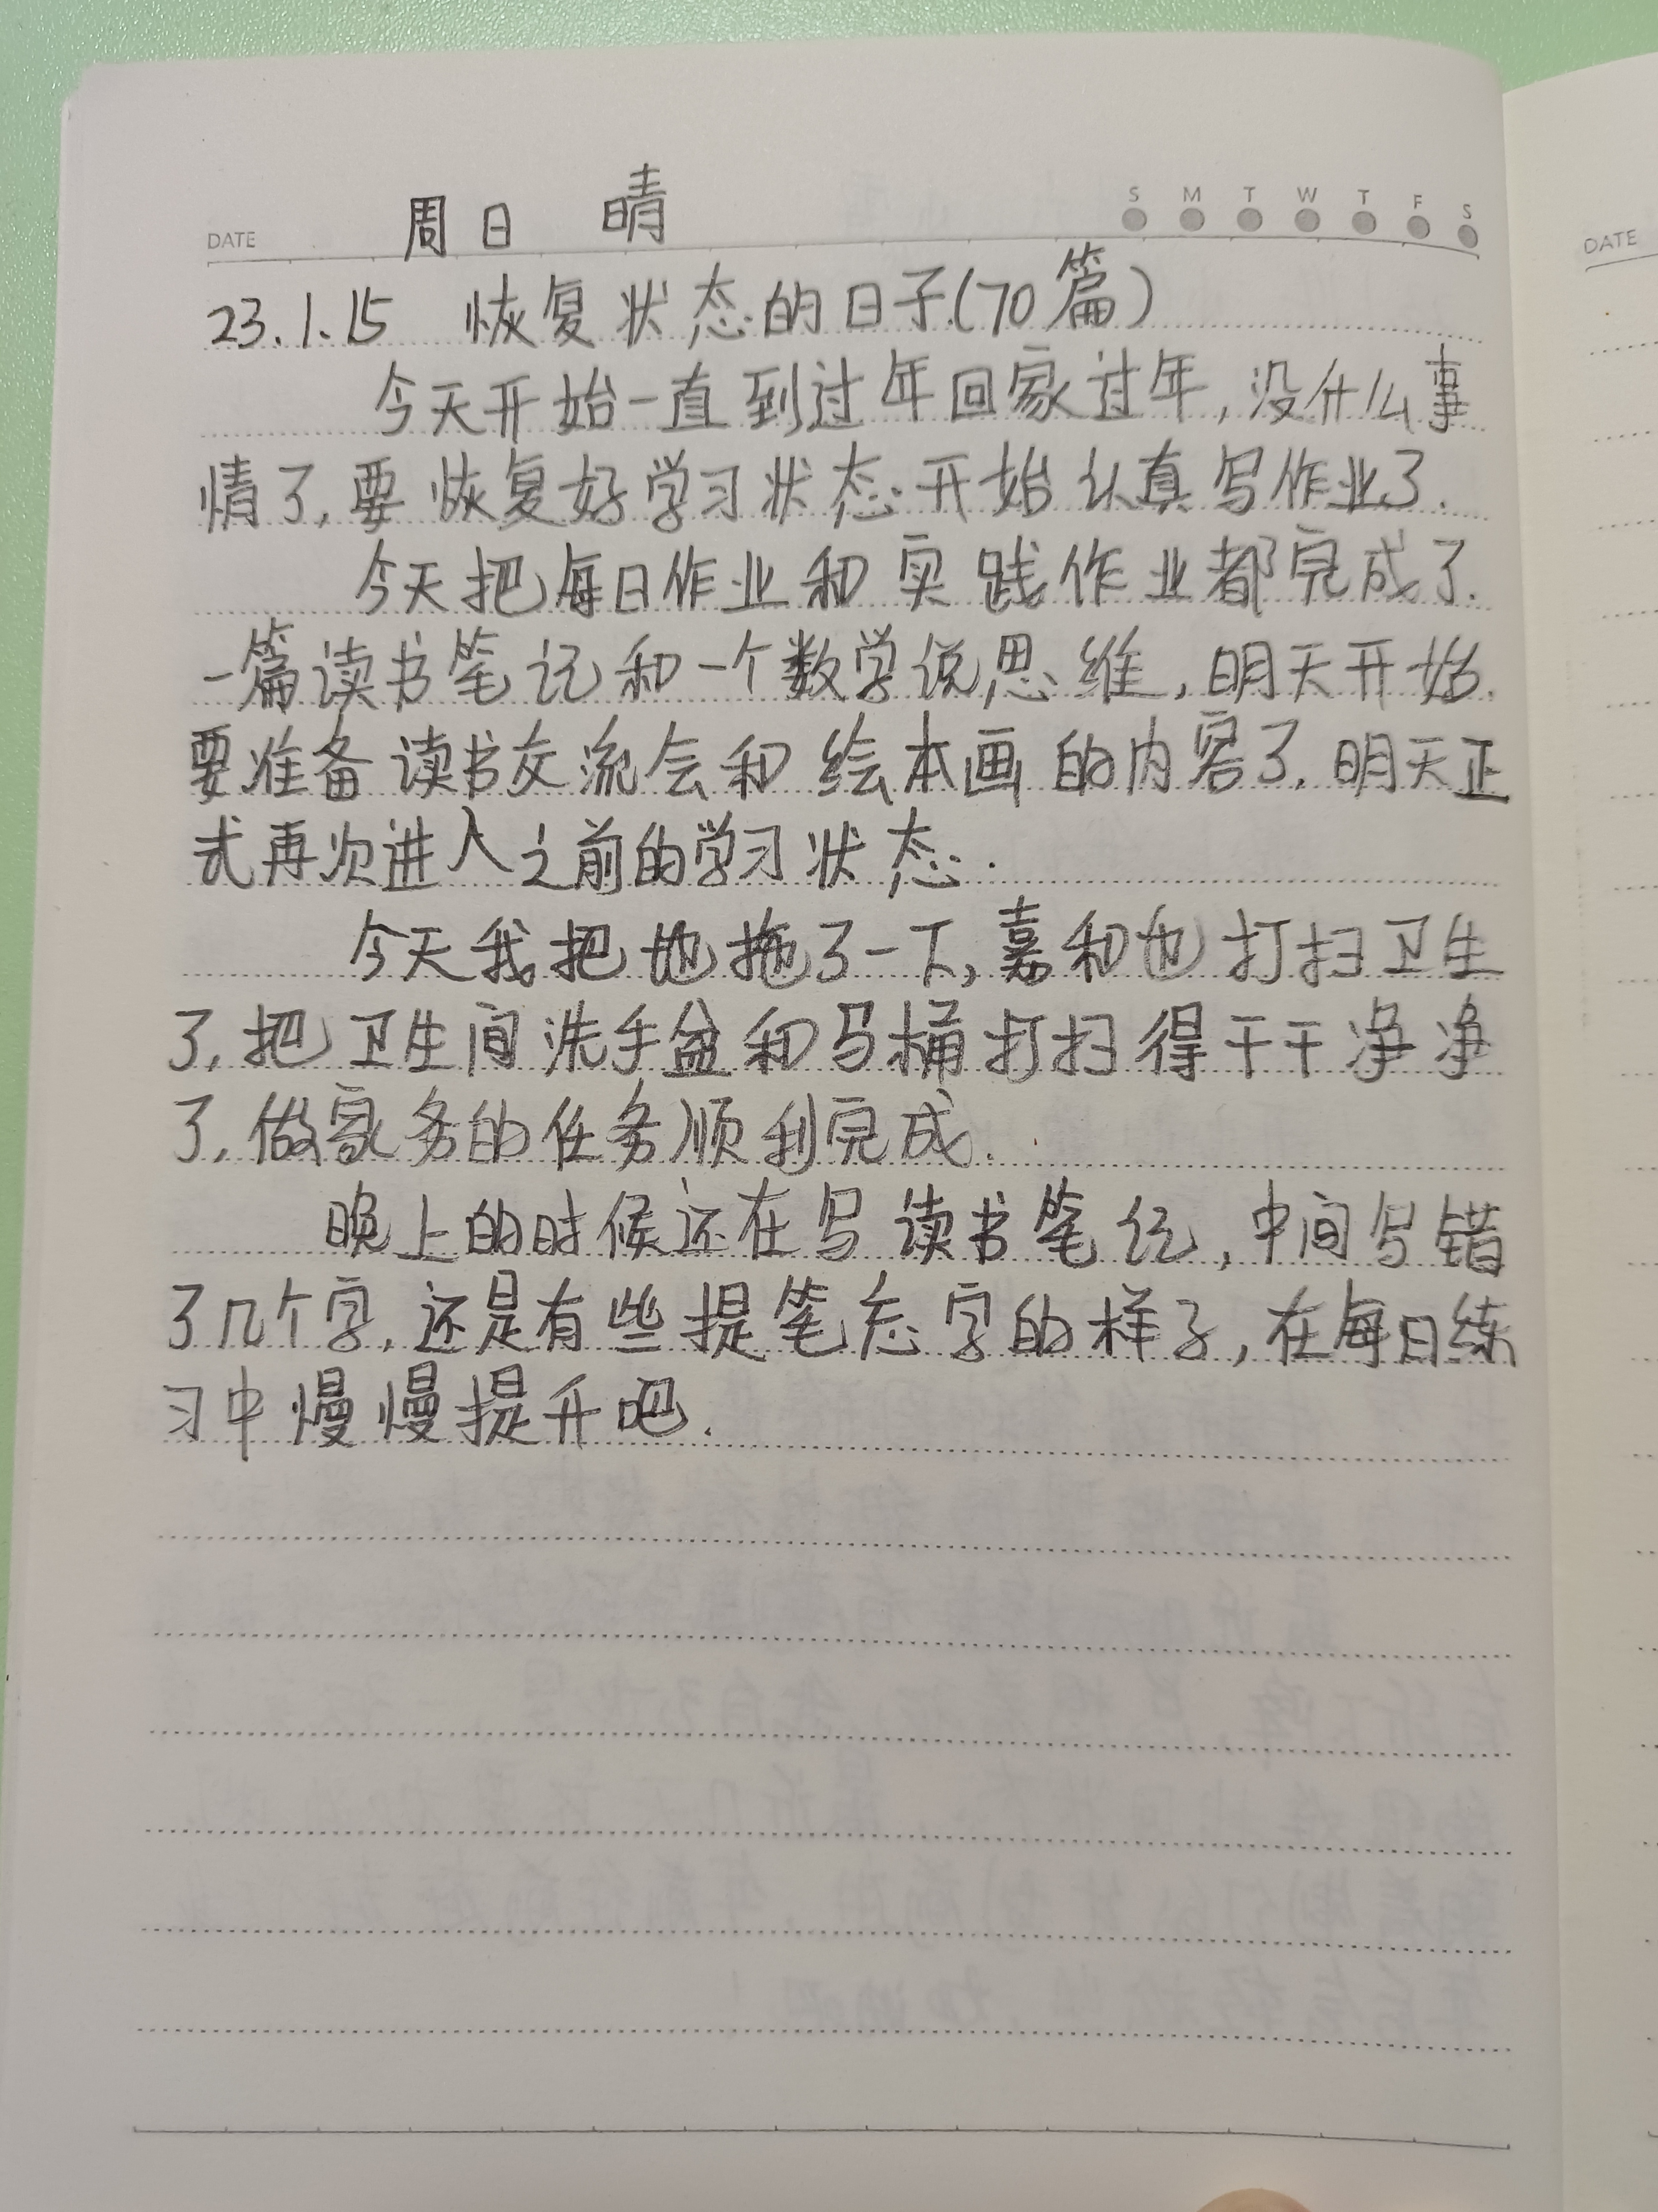 周日 晴
S M T W T F S
DATE
DATE
23.1.15 恢复状态的日子(70篇)
今天开始一直到过年回家过年,没什么事
情了.要恢复好学习状态.开始认真写作业了.
今天把每日作业和实践作业都完成了.
一篇读书笔记和一个数学说思维,明天开始.
要准备读书交流会和绘本画的内容了.明天正
式再次进入之前的学习状态.
今天我把地拖了一下,嘉和也打扫卫生
了,把卫生间洗手盆和马桶打扫得干干净净
了.做家务的任务顺利完成.
晚上的时候还在写读书笔记,中间写错
了几个字.还是有些提笔忘字的样子,在每日练
习中慢慢提升吧.